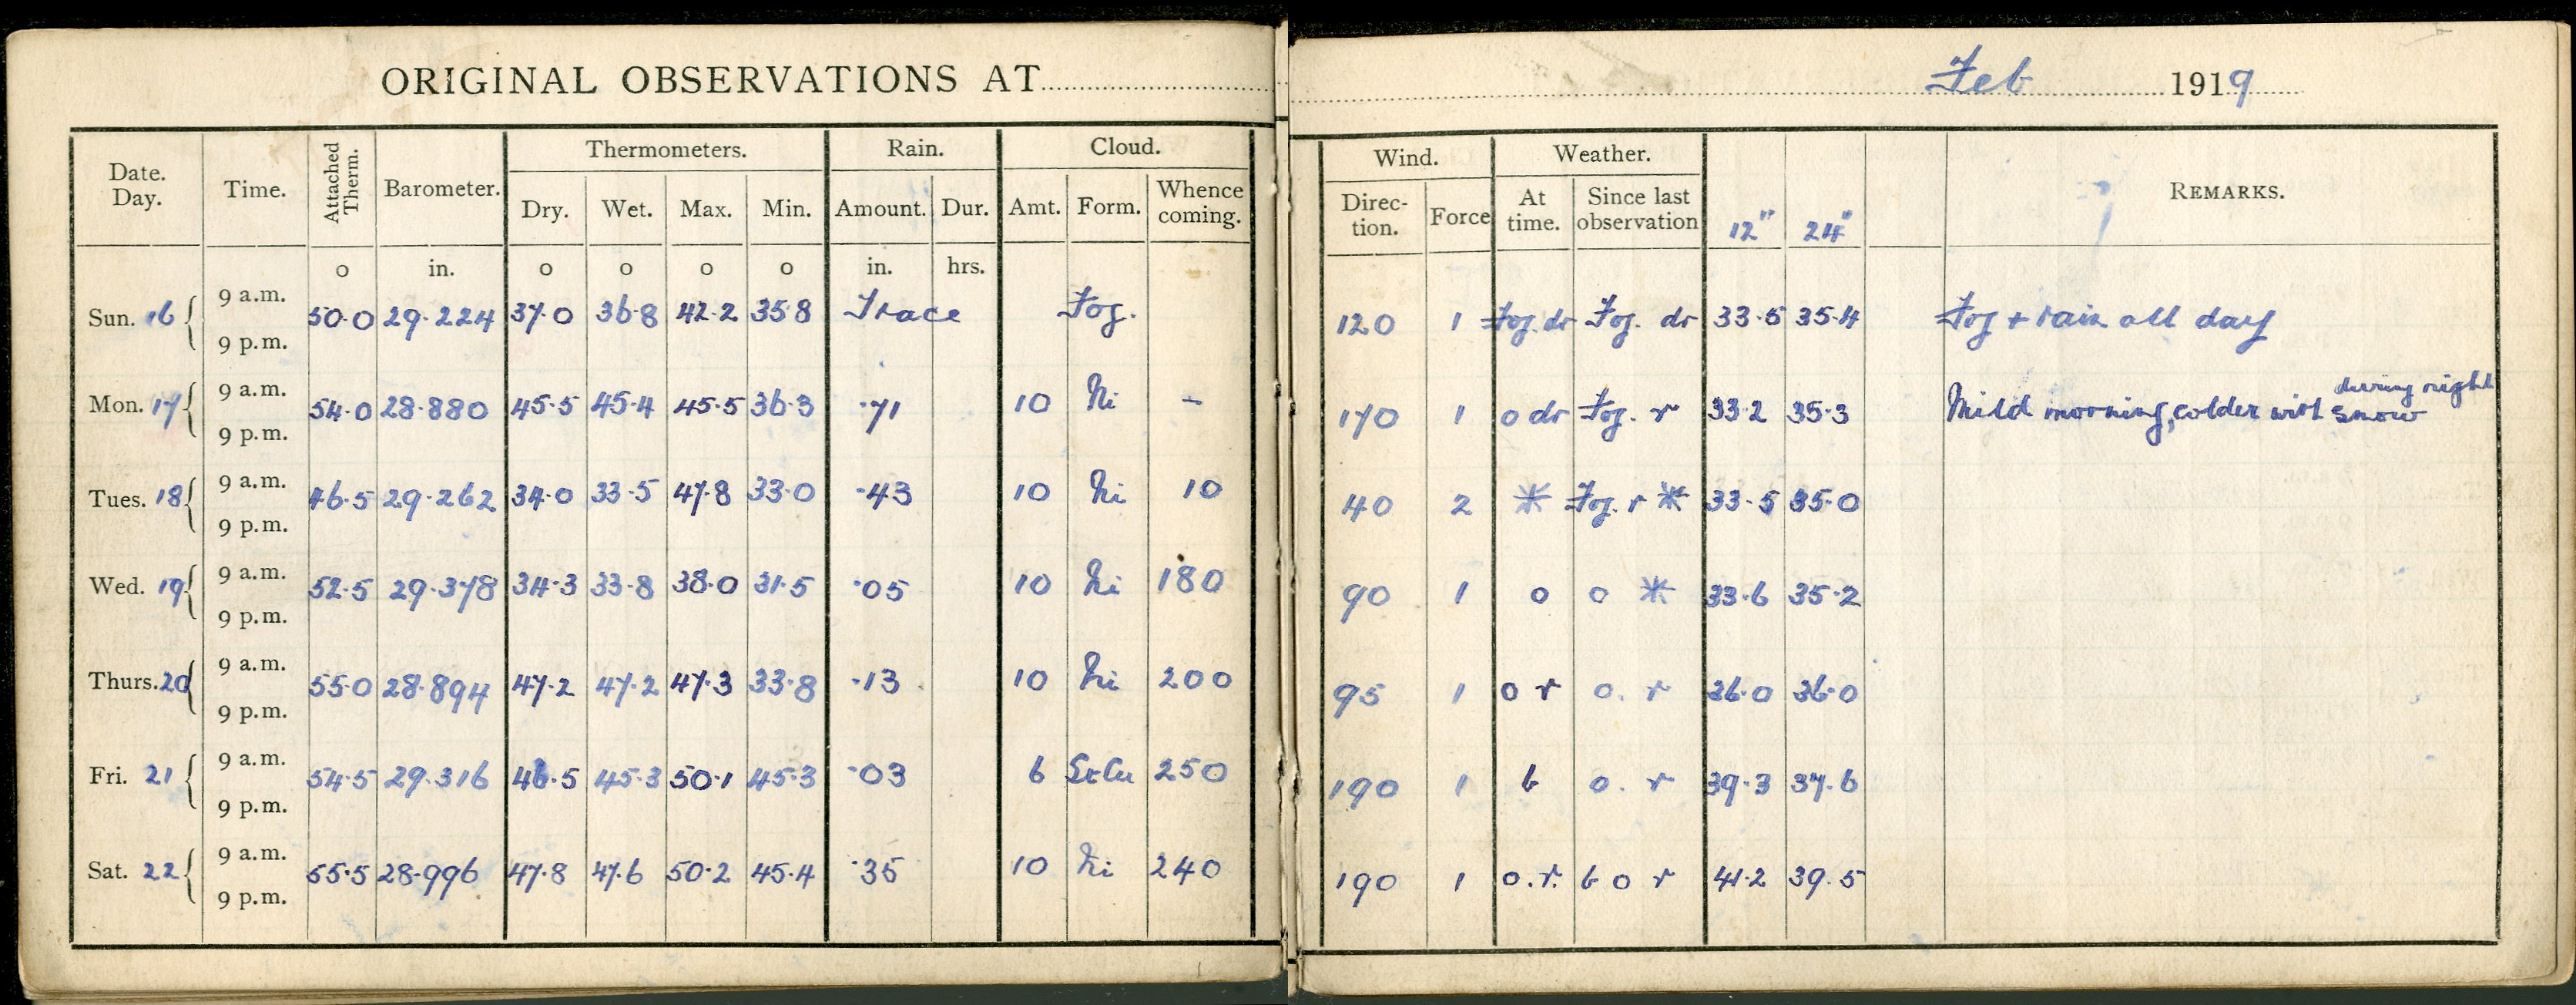 ORIGINAL OBSERVATIONS AT Feb 1919
Thermometers. Rain. Cloud. Wind. Weather.
Date. Day. Time. Attached Therm. Barometer. Dry. Wet. Max. Min. Amount. Dur. Amt. Form. Whence coming. Direc-tion. Force At time. Since last observation 12" 24" REMARKS.
o in. o o o o in. hrs.
Sun. 16 { 9 a.m. 9 p.m. 50.0 29.224 37.0 36.8 42.2 35.8 Trace Fog. 120 1 Fog dr Fog. dr 33.5 35.4 Fog + rain all day
Mon. 17 { 9 a.m. 9 p.m. 54.0 28.880 45.5 45.4 45.5 36.3 .71 10 Ni - 170 1 o dr Fog. r 33.2 35.3 Mild morning, colder with snow during night
Tues. 18 { 9 a.m. 9 p.m. 46.5 29.262 34.0 33.5 47.8 33.0 .43 10 Ni 10 40 2 * Fog. r * 33.5 35.0
Wed. 19 { 9 a.m. 9 p.m. 52.5 29.378 34.3 33.8 38.0 31.5 .05 10 Ni 180 90 1 o o * 33.6 35.2
Thurs. 20 { 9 a.m. 9 p.m. 55.0 28.894 47.2 47.2 47.3 33.8 .13 10 Ni 200 95 1 o r o. r 36.0 36.0
Fri. 21 { 9 a.m. 9 p.m. 54.5 29.316 46.5 45.3 50.1 45.3 .03 6 StCu 250 190 1 b o. r 39.3 37.6
Sat. 22 { 9 a.m. 9 p.m. 55.5 28.996 47.8 47.6 50.2 45.4 .35 10 Ni 240 190 1 o.r. b o r 41.2 39.5